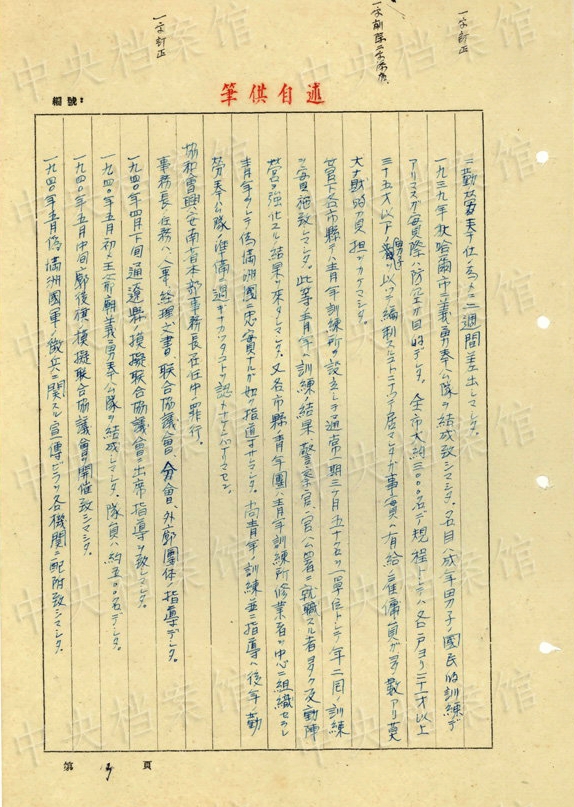 一字訂正
一字削除二字添加
一字訂正
筆供自述
編號：
ニ勤労奉仕ノ為メニ二週間差出シマシタ。
一九三九年秋哈爾市義勇奉公隊ノ結成致シマシタ。名目ハ成年男子ノ國民的訓練デ
アリマスガ実際ハ防空ガ目的デシタ。全市大約三〇〇〇名デ規程トシテハ各戸ヨリ二十才以上
三十五才以下ノ男子ヲ以テ編制スルコトニナツテ居マシタガ事実ハ有給ノ雇傭員ガ多数アリ莫
大ナ財的負担ヲカケマシタ。
省官下各市縣ニハ青年訓練所ヲ設立シテ通常一期三ケ月五十名ヲ單位トシテ年二回ノ訓練
ヲ実施致シマシタ。此等青年ハ訓練ノ結果警察官、官公署ニ就職スル者多ク反動陣
営ヲ強化スル結果ヲ來タシマシタ。又各市縣ノ青年團ハ青年訓練所修業者ヲ中心ニ組織セラレ
青年ヲシテ偽満洲國ニ忠実ナルガ如ク指導サレマシタ。尚青年ノ訓練並ニ指導ハ後年勤
労奉公隊ノ準備ノ過ギナカツタコトヲ認メナケレバナリマセン。
協和會興安南省本部事務長在任中ノ罪行。
事務長ノ任務ハ人事、経理、文書、联合協議會、分會、外廓團体ノ指導デシタ。
一九四〇年四月下旬通遼縣ノ模擬联合協議會ニ出席指導ヲ致シマシタ。
一九四〇年五月初メ王爺廟義勇奉公隊ヲ結成シマシタ。隊員ハ約五〇〇名デシタ。
一九四〇年五月中旬廓後旗ノ模擬联合協議會ヲ開催致シマシタ。
一九四〇年五月偽満洲國軍ノ徴兵ニ関スル宣傳ビラヲ各機関ニ配附致シマシタ。
第 3 頁
中央档案馆